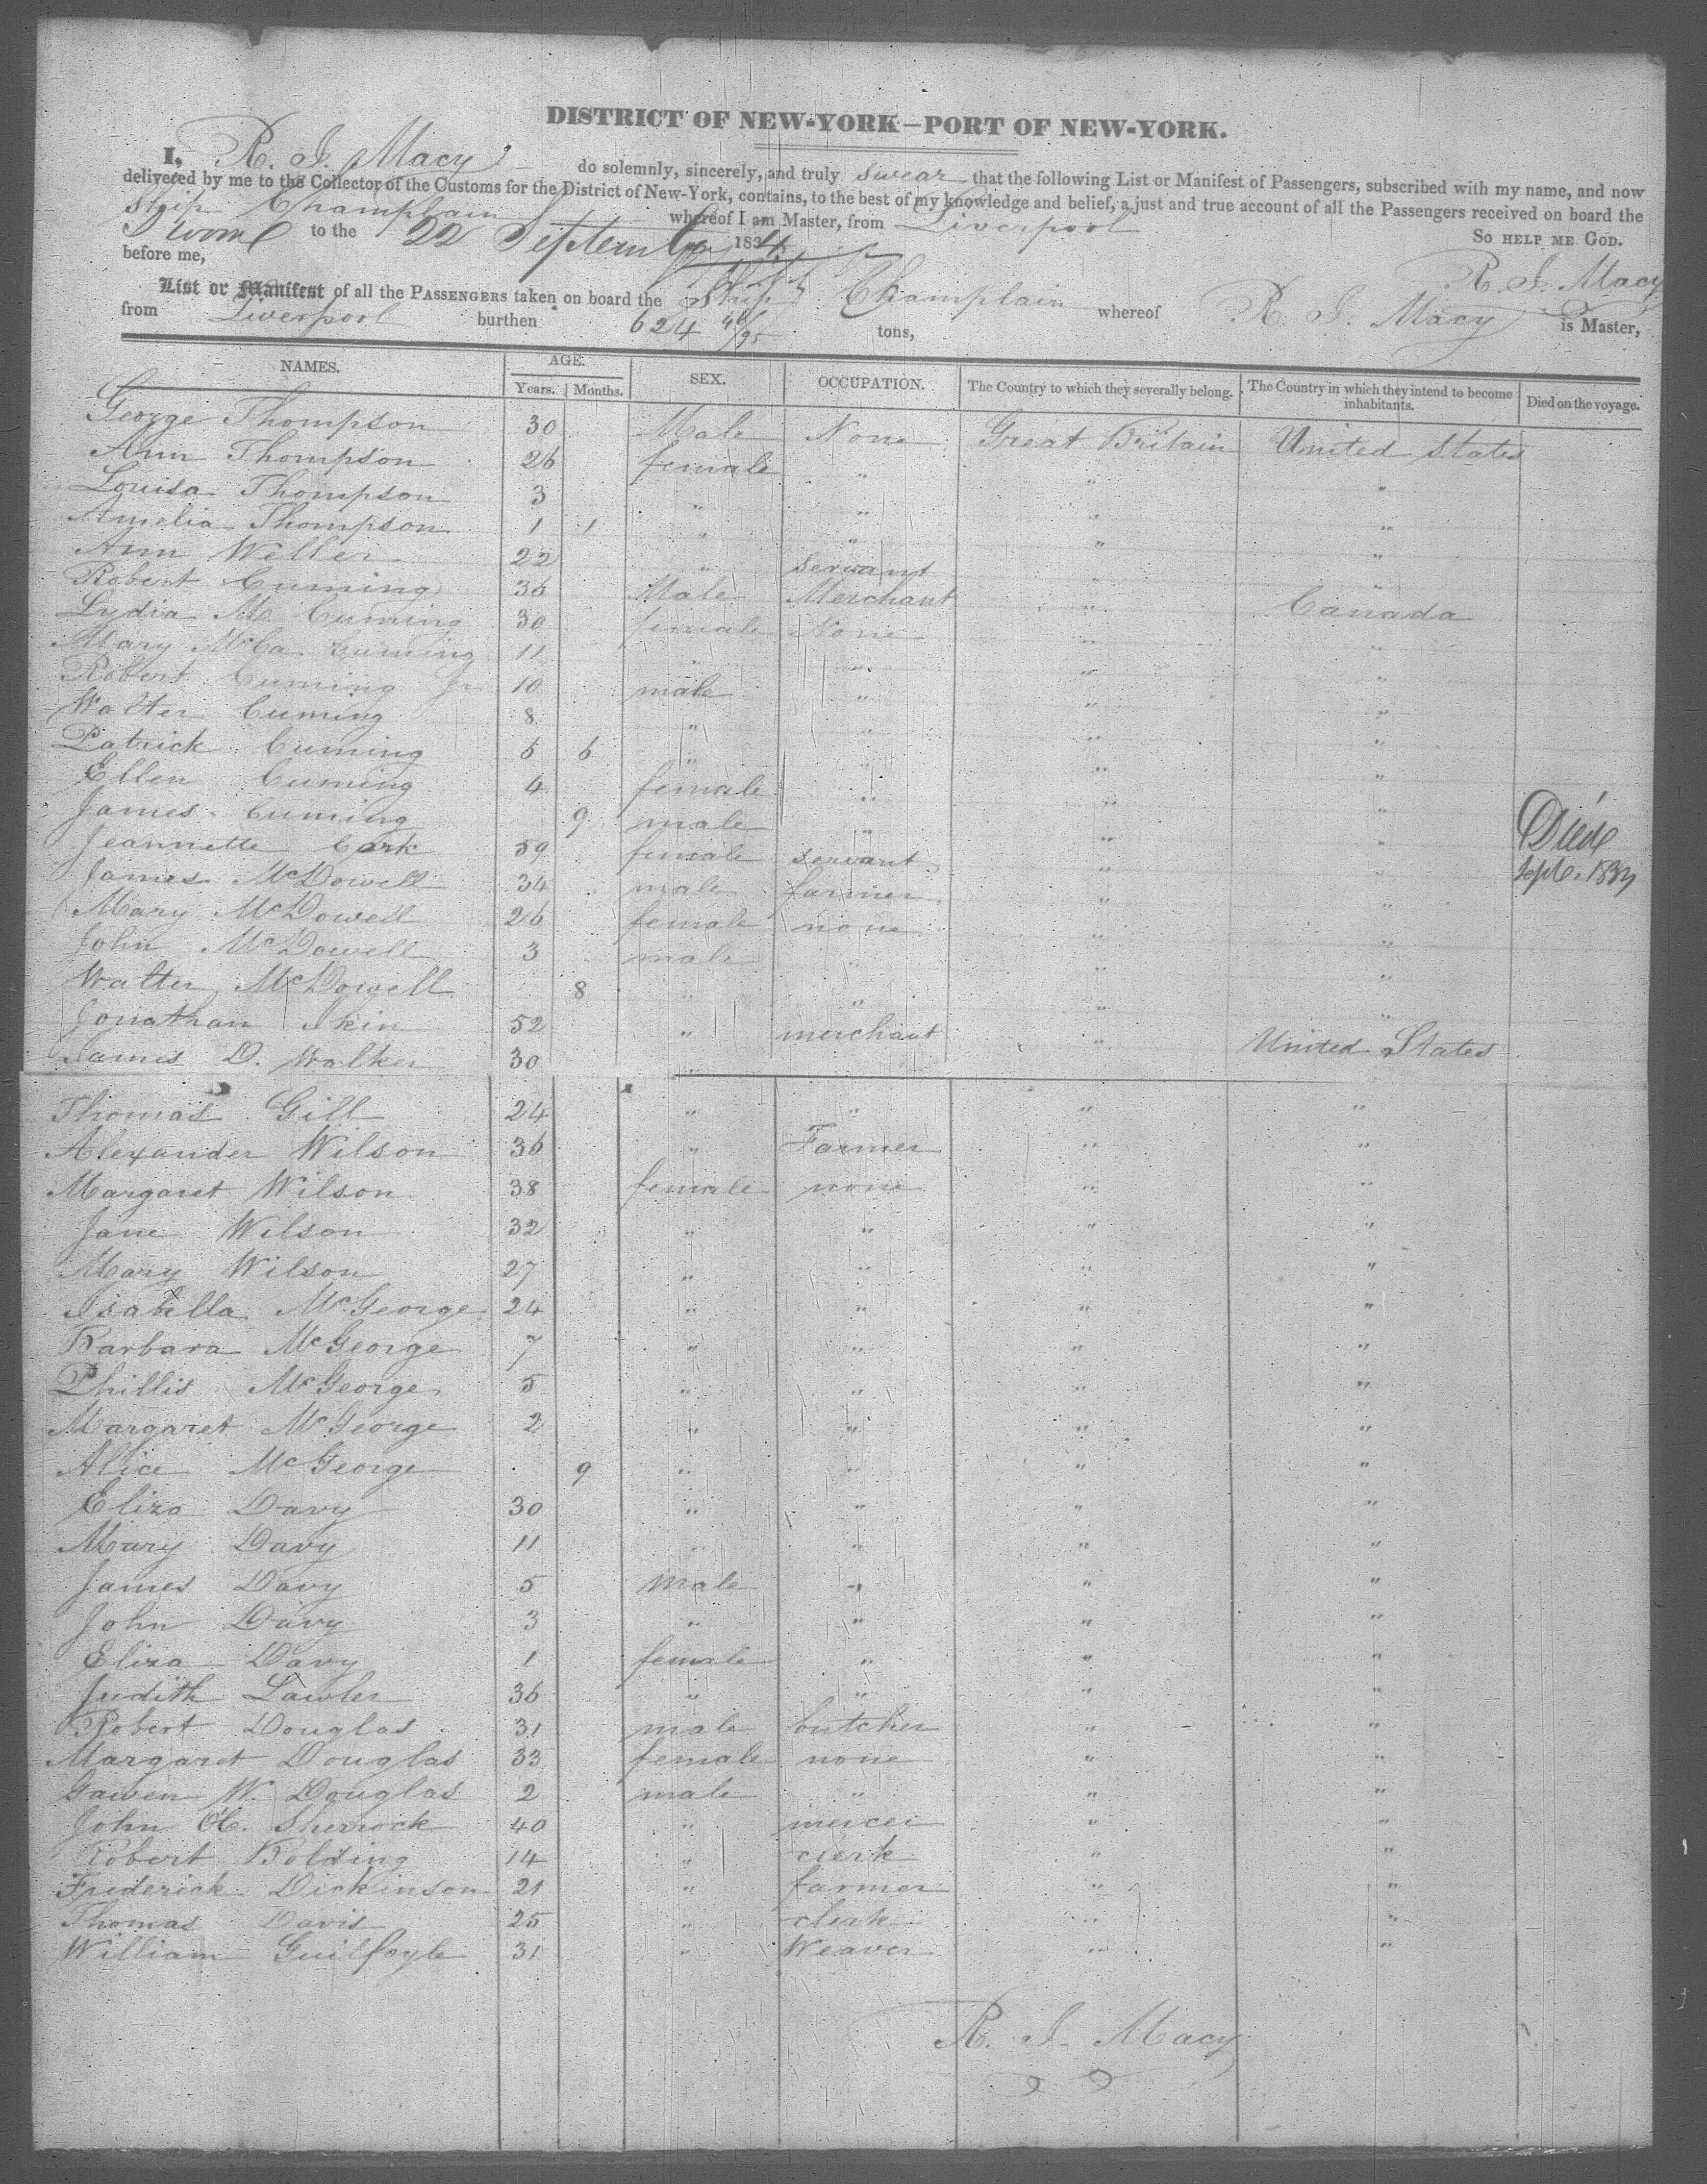 DISTRICT OF NEW-YORK—PORT OF NEW-YORK.
I, R. J. Macy do solemnly, sincerely, and truly swear that the following List or Manifest of Passengers, subscribed with my name, and now
delivered by me to the Collector of the Customs for the District of New-York, contains, to the best of my knowledge and belief, a just and true account of all the Passengers received on board the
Ship Champlain whereof I am Master, from Liverpool
Sworn to the 22 September 1834 So HELP ME GOD.
before me, R. J. Macy
List or Manifest of all the PASSENGERS taken on board the Ship Champlain whereof R. J. Macy is Master,
from Liverpool burthen 624 40/95 tons,
NAMES. AGE. SEX. OCCUPATION. The Country to which they severally belong. The Country in which they intend to become inhabitants. Died on the voyage.
Years. Months.
George Thompson 30 Male None Great Britain United States
Ann Thompson 26 female " " "
Louisa Thompson 3 " " " "
Amelia Thompson 1 1 " " " "
Ann Weller 22 " Servant " "
Robert Cuming 36 Male Merchant " Canada
Lydia M. Cuming 30 female None " "
Mary McCa Cuming 11 " " " "
Robert Cuming Jr 10 male " " "
Walter Cuming 8 " " " "
Patrick Cuming 5 6 " " " "
Ellen Cuming 4 female " " "
James Cuming 9 male " " " Died
Jeannette Cork 59 female servant " " Sept. 1834
James McDowell 34 male farmer " "
Mary McDowell 26 female none " "
John McDowell 3 male " " "
Walter McDowell 8 " " " "
Jonathan Skin 52 " merchant " United States
James D. Walker 30 "
Thomas Gill 24 " " " "
Alexander Wilson 36 " Farmer " "
Margaret Wilson 38 female none " "
Jane Wilson 32 " " " "
Mary Wilson 27 " " " "
Isabella McGeorge 24 " " " "
Barbara McGeorge 7 " " " "
Phillis McGeorge 5 " " " "
Margaret McGeorge 2 " " " "
Alice McGeorge 9 " " " "
Eliza Davy 30 " " " "
Mary Davy 11 " " " "
James Davy 5 male " " "
John Davy 3 " " " "
Eliza Davy 1 female " " "
Judith Lawler 36 " " " "
Robert Douglas 31 male butcher " "
Margaret Douglas 33 female none " "
Gawen W. Douglas 2 male " " "
John Sherrock 40 " mercer " "
Robert Bolding 14 " clerk " "
Frederick Dickinson 21 " farmer " "
Thomas Davis 25 " clerk " "
William Guilfoyle 31 " Weaver " "
R. J. Macy